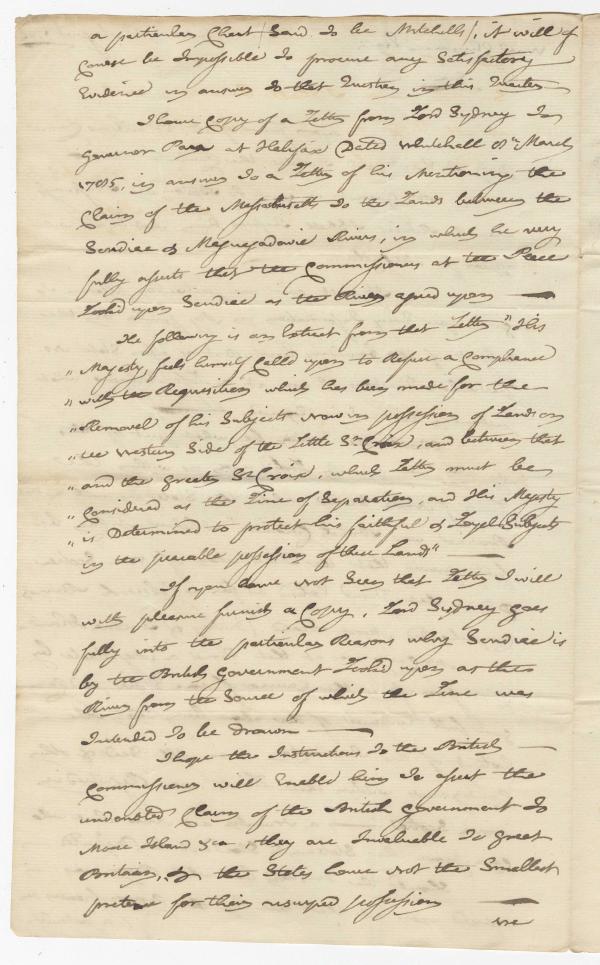 a particular Chart (Said to be Mitchells), it will of
Course be Impossible to procure any Satisfactory
Evidence in answer to that Question in this Quarter
I have Copy of a Letter from Lord Sydney to
Governor Parr at Halifax Dated Whitehall 8th March
1785, in answer to a Letter of his Mentioning the
Claim of the Massachusetts to the Lands between the
Scudiac & Maguagadavic Rivers, in which he very
fully asserts that the Commissioners at the Peace
Look'd upon Scudiac as the River agreed upon —
The following is an Extract from that Letter "His
" Majesty, feels himself Call'd upon to Refuse a Compliance
" with the Requisition which has been made for the
" Removal of his Subjects now in possession of Lands on
" the western Side of the Little St Croix, and between that
" and the greater St Croix, which Latter must be
" Considered as the Line of Separation, and His Majesty
" is Determined to protect his faithful & Loyal Subjects
" in the peacable possession of these Lands" —
If you have not Seen that Letter I will
with pleasure furnish a Copy, Lord Sydney goes
fully into the particular Reasons why Scudiac is
by the British Government Look'd upon as the
River from the Source of which the Line was
Intended to be drawn —
I hope the Instructions to the British —
Commissioner will Enable him to assert the
undoubted Claim of the British Government to
Moose Island &ca, they are Invaluable to great
Britain, & the States have not the Smallest
pretence for their usurped possession —
we